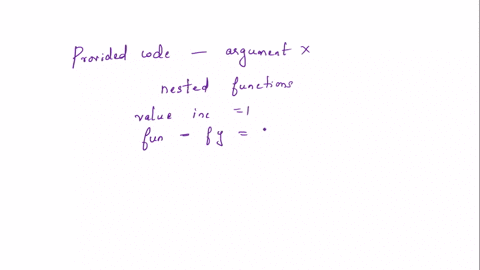 Provided code — argument x
nested functions
value inc = 1
fun - fy =